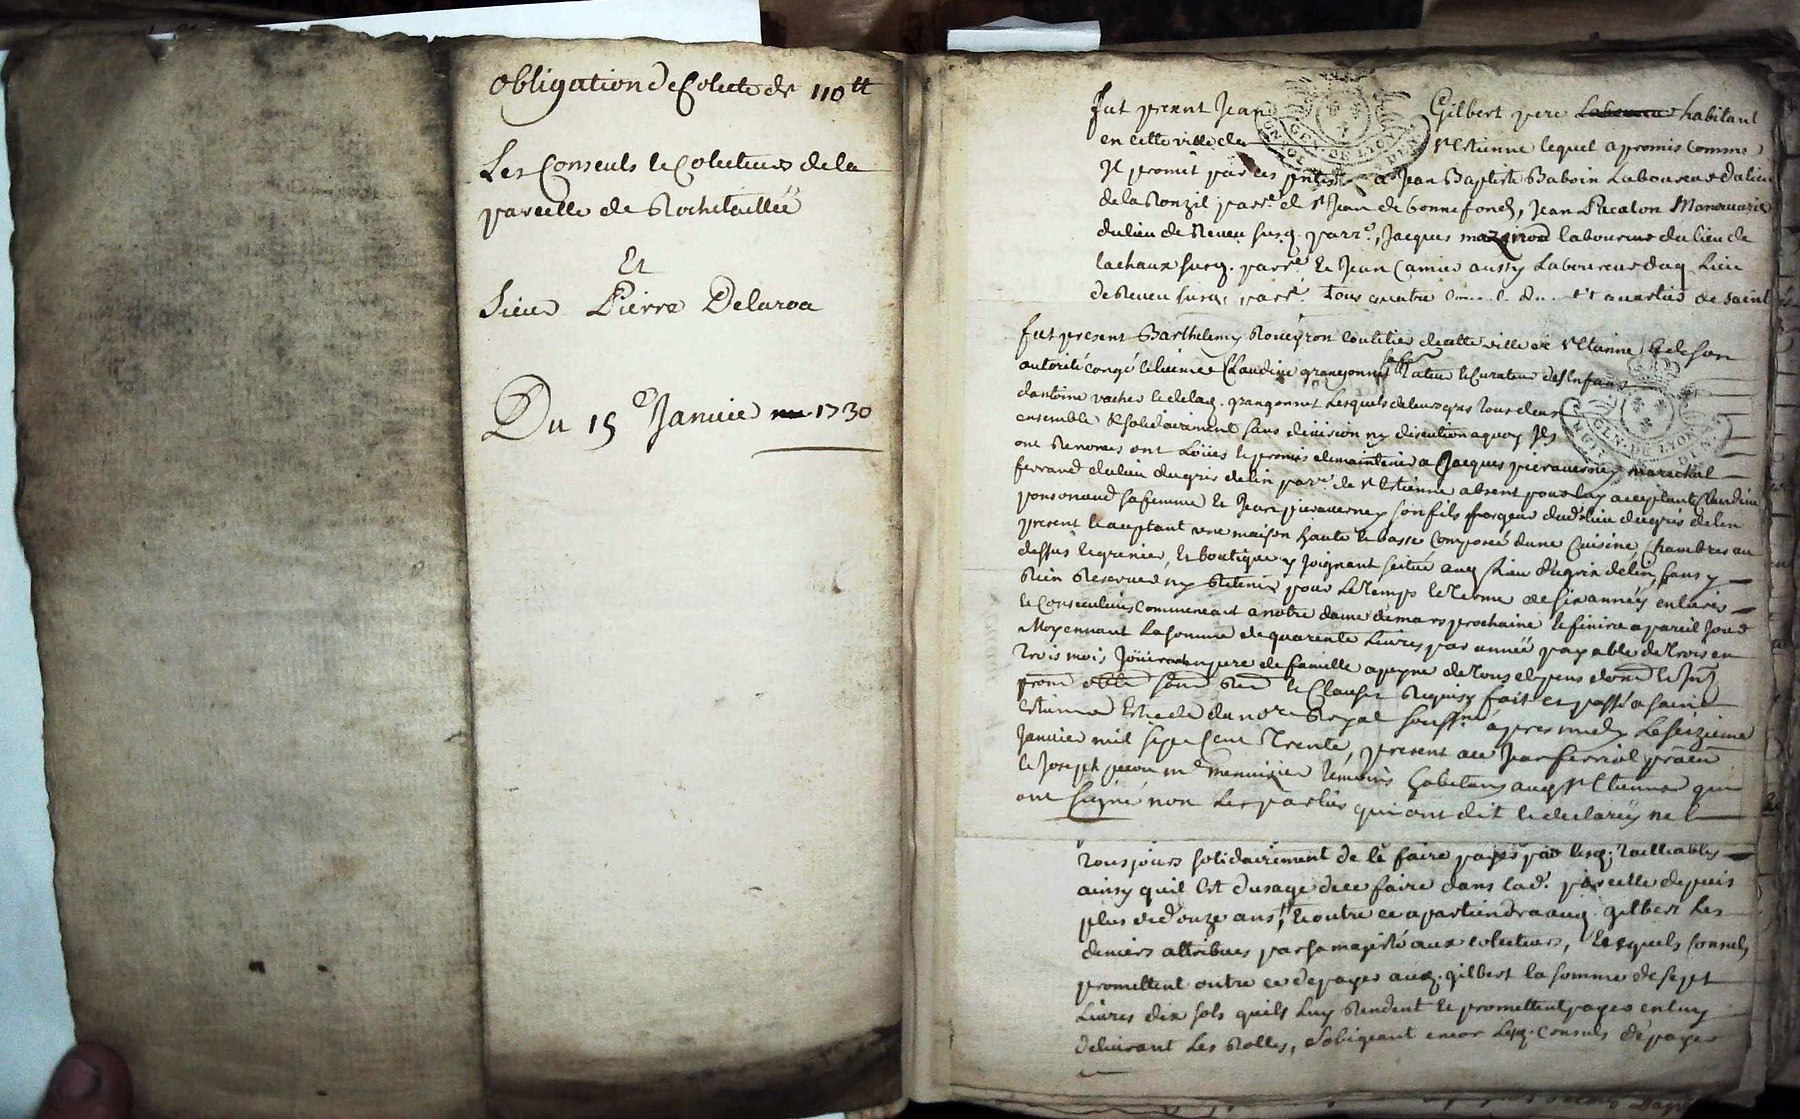 Obligation de Colecte de 110tt
Les Consuls et Colecteurs de la
paroelle de Rochetaillée
Et
Sieur Pierre Delaroa
Du 15e Janvier 1730
fut presnt Jean Gilbert pere habitant
en cette ville de St Etienne lequel a promis comme
Il promet par ces pntes a Jean Baptiste Baboin Laboureur du lieu
de la Ronzil parr. de St Jean de bonnefond, Jean Pacalon
du lieu de Reveu susq. parr., Jacques laboureur du lieu de
lachaux susq. parr. Et Jean Camier aussy Laboureur duq. Lieu
de Reveu susq. parr. Tous quatre de Saint
fut present Barthelemy Roueyron Coutelier de cette ville de St Etienne Et de son
autorité congé licence Claudine grangonnet sa fe Tateur et Curateur des Enfans
d'antoine vacher et de laq. grangonnet Lesquels de leurs grés tous deux
ensemble & solidairement sans division ny discution a quoy Ils
ont Renoncés ont Loüés et promis de maintenir a Jacques marechal
ferrand du lieu du gris de lin parr. de St Estienne absent pour luy acceptant Claudine
ponsonaud sa femme Et Jean son fils forgeur dud. lieu du gris de lin
present et aceptant une maison haute et basse Composeé dune Cuisine, Chambres au
dessus et grenier, Et boutique y Joignant scitué auq. Lieu du gris de lin, sans y
Rien Reserver ny Retenir pour Le Temps et Terme de six années entieres
et Consecutives Commenceant a notre dame de mars prochaine et finira a pareil Jour
Moyennant La somme de quarante Livres par année payable de Trois en
Trois mois Joüiront en pere de famille a peyne de tous depens dom. et Int.
prom. obl. soum. Ren. et Clauses Requises fait et passé a saint
Estienne Estude du nore Royal soussné apres midy Le seizieme
Janvier mil sept Cent Trente, present Me Jean ferriol praen
et Joseph md menuisier temoins habitans auq. St Etienne qui
ont signé non Les parties qui ont dit et declaré ne
tousjours solidairement de le faire payer par lesq. Tailliables
ainsy quil Est dusage de ce faire dans lad. paroelle depuis
plus de d'ouze ans, Et outre ce apartiendra auq. gilbert Les
deniers attribues par sa majesté aux colecteurs, Lesquels Consuls
promettent outre ce de payer auq. gilbert la somme de sept
Livres dix sols quils Luy Rendent et promettent payer en luy
delivrant Les Rolles, s'obligeant encor Lesq. Consuls de payer